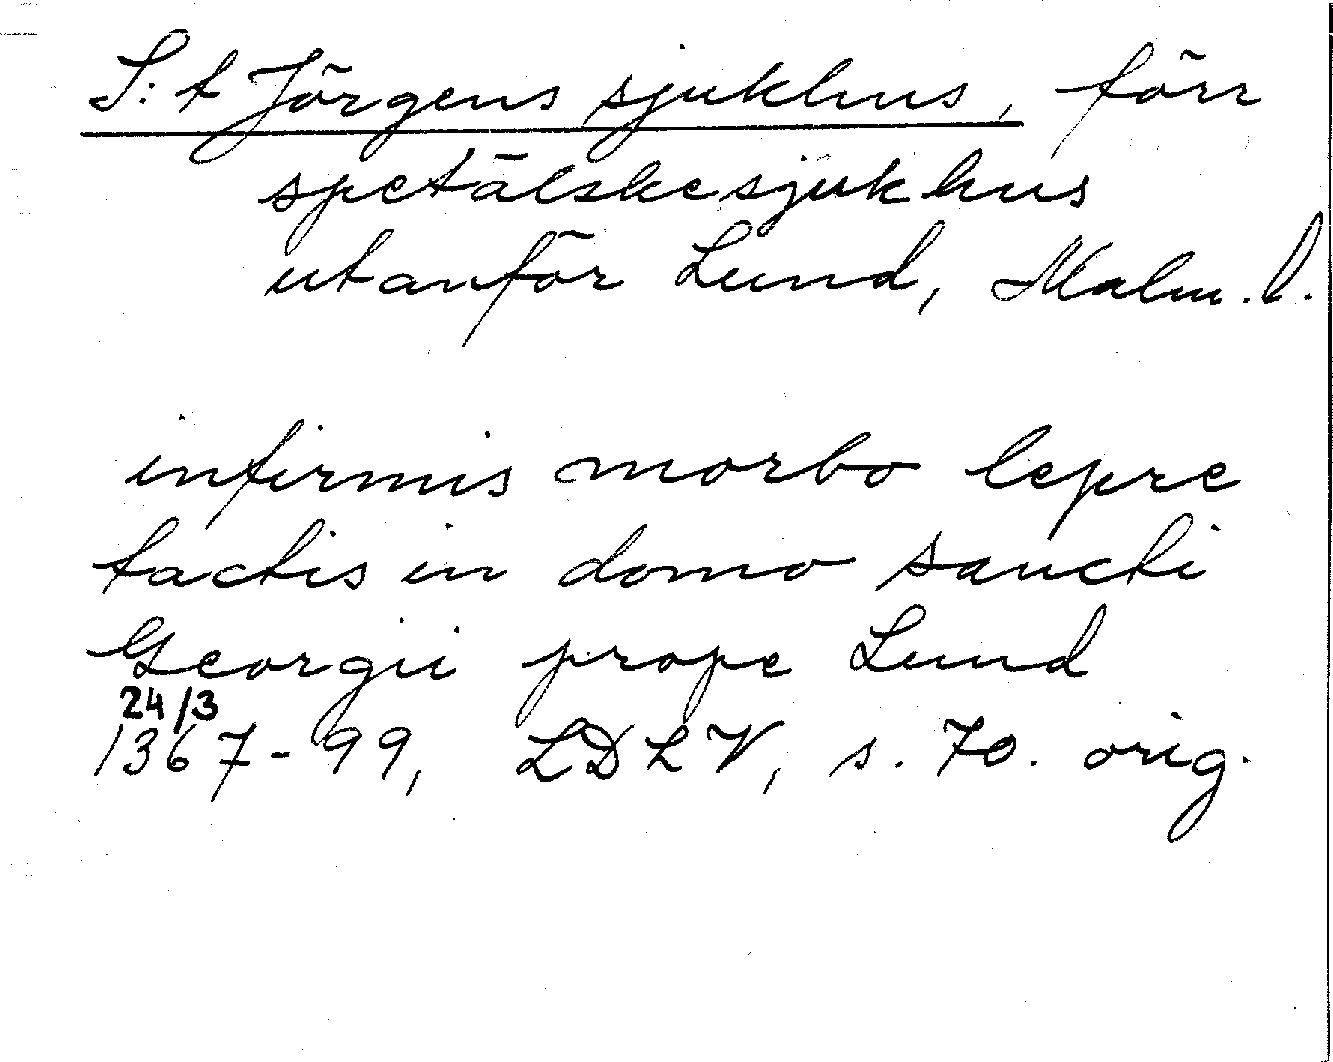 S:t Jörgens sjukhus, förr
spetälskesjukhus
utanför Lund, Malm. l.
infirmis morbo lepre
tactis in domo sancti
Georgii prope Lund
24/3
1367-99, LDLV, s. 70. orig.